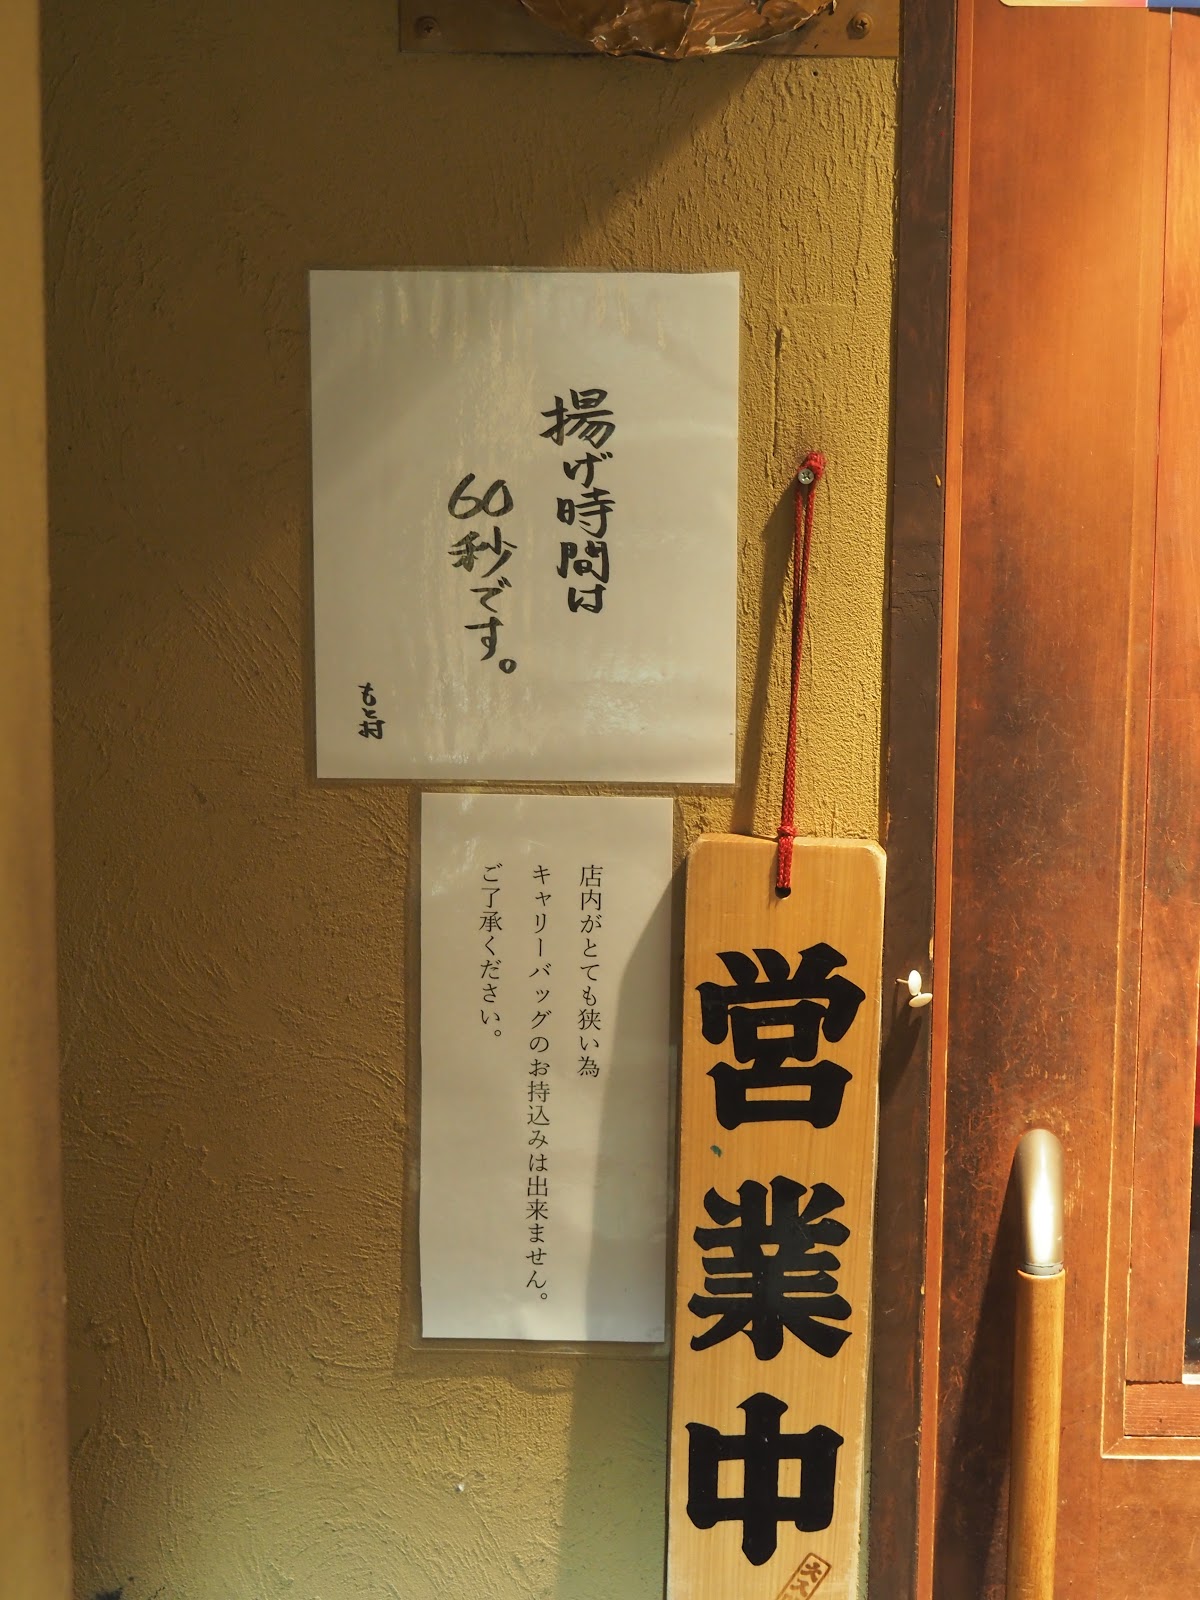 揚げ時間は
60秒です。
もと村
店内がとても狭い為
キャリーバッグのお持込みは出来ません。
ご了承ください。
営業中